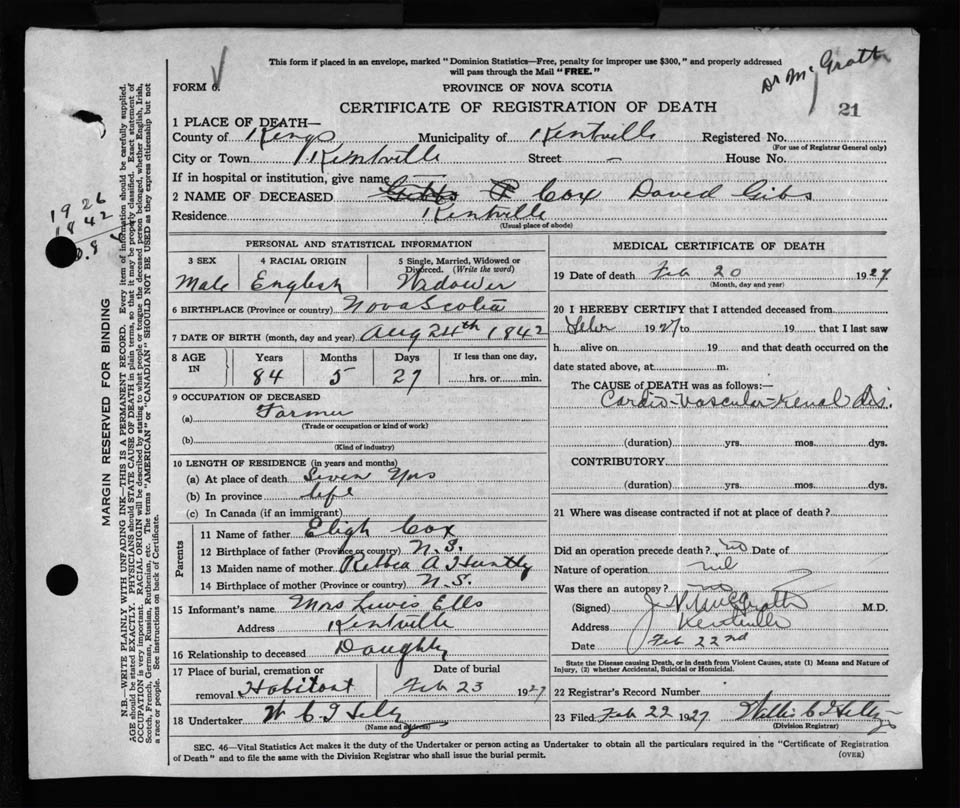 This form if placed in an envelope, marked "Dominion Statistics—Free, penalty for improper use $300," and properly addressed
will pass through the Mail "FREE."
Dr McGrath
FORM 6.
PROVINCE OF NOVA SCOTIA
CERTIFICATE OF REGISTRATION OF DEATH
21
1 PLACE OF DEATH—
County of Kings Municipality of Kentville Registered No.
(For use of Registrar General only)
City or Town Kentville Street – House No.
If in hospital or institution, give name
2 NAME OF DECEASED Cox David Gibs
Residence Kentville
(Usual place of abode)
1926
1842
PERSONAL AND STATISTICAL INFORMATION
3 SEX 4 RACIAL ORIGIN 5 Single, Married, Widowed or Divorced. (Write the word)
Male English Widower
6 BIRTHPLACE (Province or country) Nova Scotia
7 DATE OF BIRTH (month, day and year) Aug 24th 1842
8 AGE IN Years Months Days If less than one day,
84 5 27 hrs. or min.
9 OCCUPATION OF DECEASED
(a) Farmer
(Trade or occupation or kind of work)
(b)
(Kind of industry)
10 LENGTH OF RESIDENCE (in years and months)
(a) At place of death Seven Yrs
(b) In province life
(c) In Canada (if an immigrant)
Parents
11 Name of father Eligh Cox
12 Birthplace of father (Province or country) N.S.
13 Maiden name of mother Rebbca A Huntly
14 Birthplace of mother (Province or country) N.S.
15 Informant's name Mrs Lewis Ells
Address Kentville
16 Relationship to deceased Daughty
17 Place of burial, cremation or Date of burial
removal Habitant Feb 23 1927
18 Undertaker W C T Hely
(Name and address)
MEDICAL CERTIFICATE OF DEATH
19 Date of death Feb 20 1927
(Month, day and year)
20 I HEREBY CERTIFY that I attended deceased from
1927 to 19 that I last saw
h alive on 19 and that death occurred on the
date stated above, at m.
The CAUSE of DEATH was as follows:—
Cardio-Vascular-Renal dis.
(duration) yrs. mos. dys.
CONTRIBUTORY
(duration) yrs. mos. dys.
21 Where was disease contracted if not at place of death?
Did an operation precede death? no Date of
Nature of operation nil
Was there an autopsy? no
(Signed) J. N. McGrath M.D.
Address Kentville
Date Feb 22nd
State the Disease causing Death, or in death from Violent Causes, state (1) Means and Nature of
Injury, (2) whether Accidental, Suicidal or Homicidal.
22 Registrar's Record Number
23 Filed Feb 22 1927
(Division Registrar)
SEC. 46—Vital Statistics Act makes it the duty of the Undertaker or person acting as Undertaker to obtain all the particulars required in the "Certificate of Registration
of Death" and to file the same with the Division Registrar who shall issue the burial permit.
(OVER)
MARGIN RESERVED FOR BINDING
N.B.—WRITE PLAINLY WITH UNFADING INK—THIS IS A PERMANENT RECORD. Every item of information should be carefully supplied.
AGE should be stated EXACTLY. PHYSICIANS should STATE CAUSE OF DEATH in plain terms, so that it may be properly classified. Exact statement of
OCCUPATION is very important. RACIAL ORIGIN will be described by stating to what people or tongue the deceased person belonged, whether English, Irish,
Scotch, French, German, Russian, Ruthenian, etc. The terms "AMERICAN" or "CANADIAN" SHOULD NOT BE USED as they express citizenship but not
a race or people. See instructions on back of Certificate.